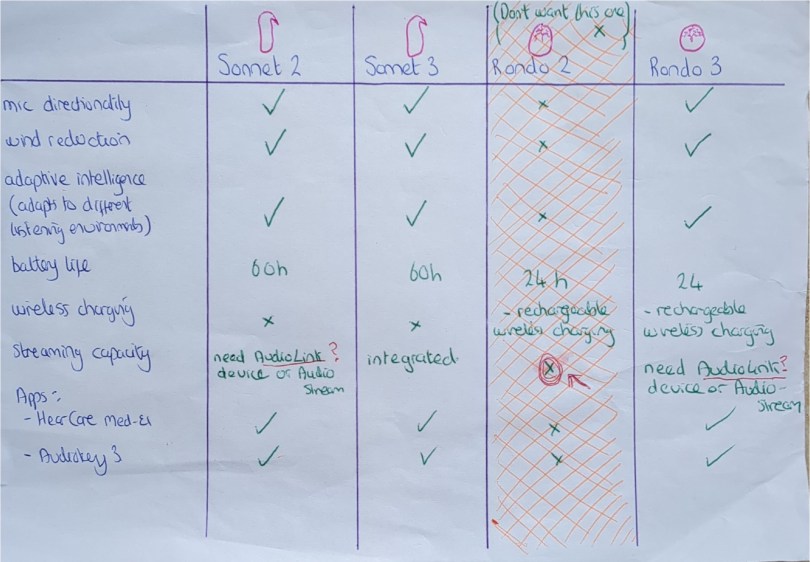 (Dont want this one) x
Sonnet 2 Sonnet 3 Rondo 2 Rondo 3
mic directionality ✓ ✓ x ✓
wind reduction ✓ ✓ x ✓
adaptive intelligence
(adapts to different
listening environments) ✓ ✓ x ✓
battery life 60h 60h 24h 24
wireless charging x x - rechargeable wireless charging - rechargeable wireless charging
streaming capacity need AudioLink? device or Audio Stream integrated x need AudioLink? device or Audio-Stream
Apps :-
- HearCare Med-El ✓ ✓ x ✓
- Audiokey 3 ✓ ✓ x ✓